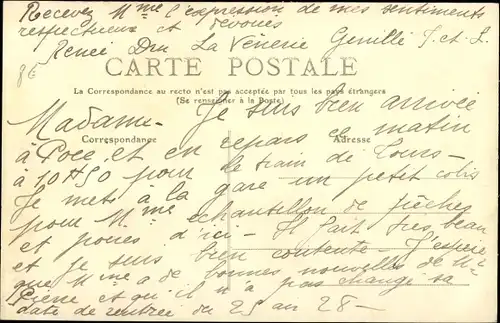 Recevez Mme l'expression de mes sentiments
respectueux et dévoués
Renée La Vénerie Genillé I.-et-L.
8E
CARTE POSTALE
La Correspondance au recto n'est pas acceptée par tous les pays étrangers
(Se renseigner à la Poste)
Madame - Je suis bien arrivée
Correspondance Adresse
à Poce, et en repars ce matin
à 10H50 pour le train de Tours -
Je mets à la gare un petit colis
pour Mme échantillon de pêches
et poires d'ici - Il fait très beau
et je suis bien contente - J'espère
que Mme a de bonnes nouvelles de Mr
Pierre et qu'il n'a pas changé sa
date de rentrée du 25 au 28 -